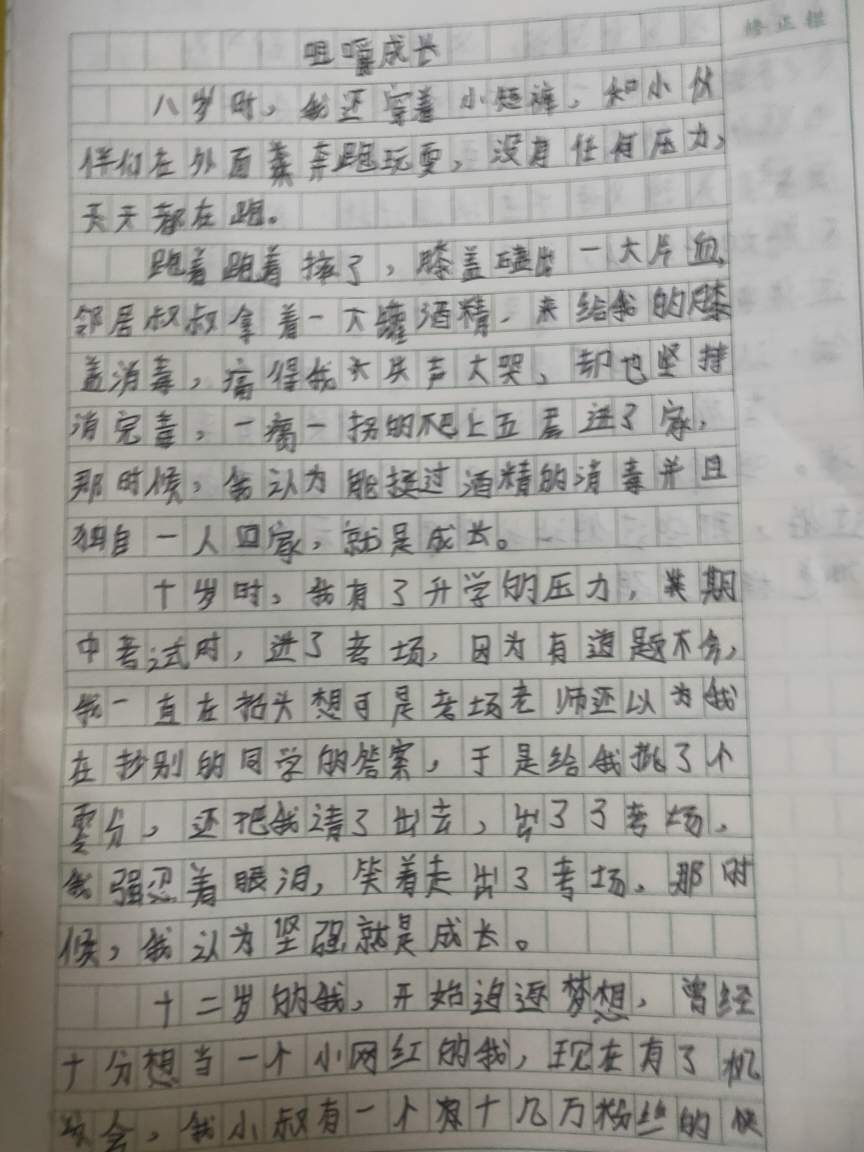 修正栏
咀嚼成长
八岁时，我还穿着小短裤，和小伙
伴们在外面奔跑玩耍，没有任何压力，
天天都在跑。
跑着跑着摔了，膝盖磕出一大片血，
邻居叔叔拿着一大罐酒精，来给我的膝
盖消毒，痛得我大失声大哭，却也坚持
消完毒，一瘸一拐的爬上五层进了家，
那时候，我认为能挺过酒精的消毒并且
独自一人回家，就是成长。
十岁时，我有了升学的压力，期
中考试时，进了考场，因为有道题不会，
我一直在抬头想可是考场老师还以为我
在抄别的同学的答案，于是给我批了个
零分，还把我请了出去，出了了考场，
我强忍着眼泪，笑着走出了考场，那时
候，我认为坚强就是成长。
十二岁的我，开始追逐梦想，曾经
十分想当一个小网红的我，现在有了机
会，我小叔有一个有十几万粉丝的快